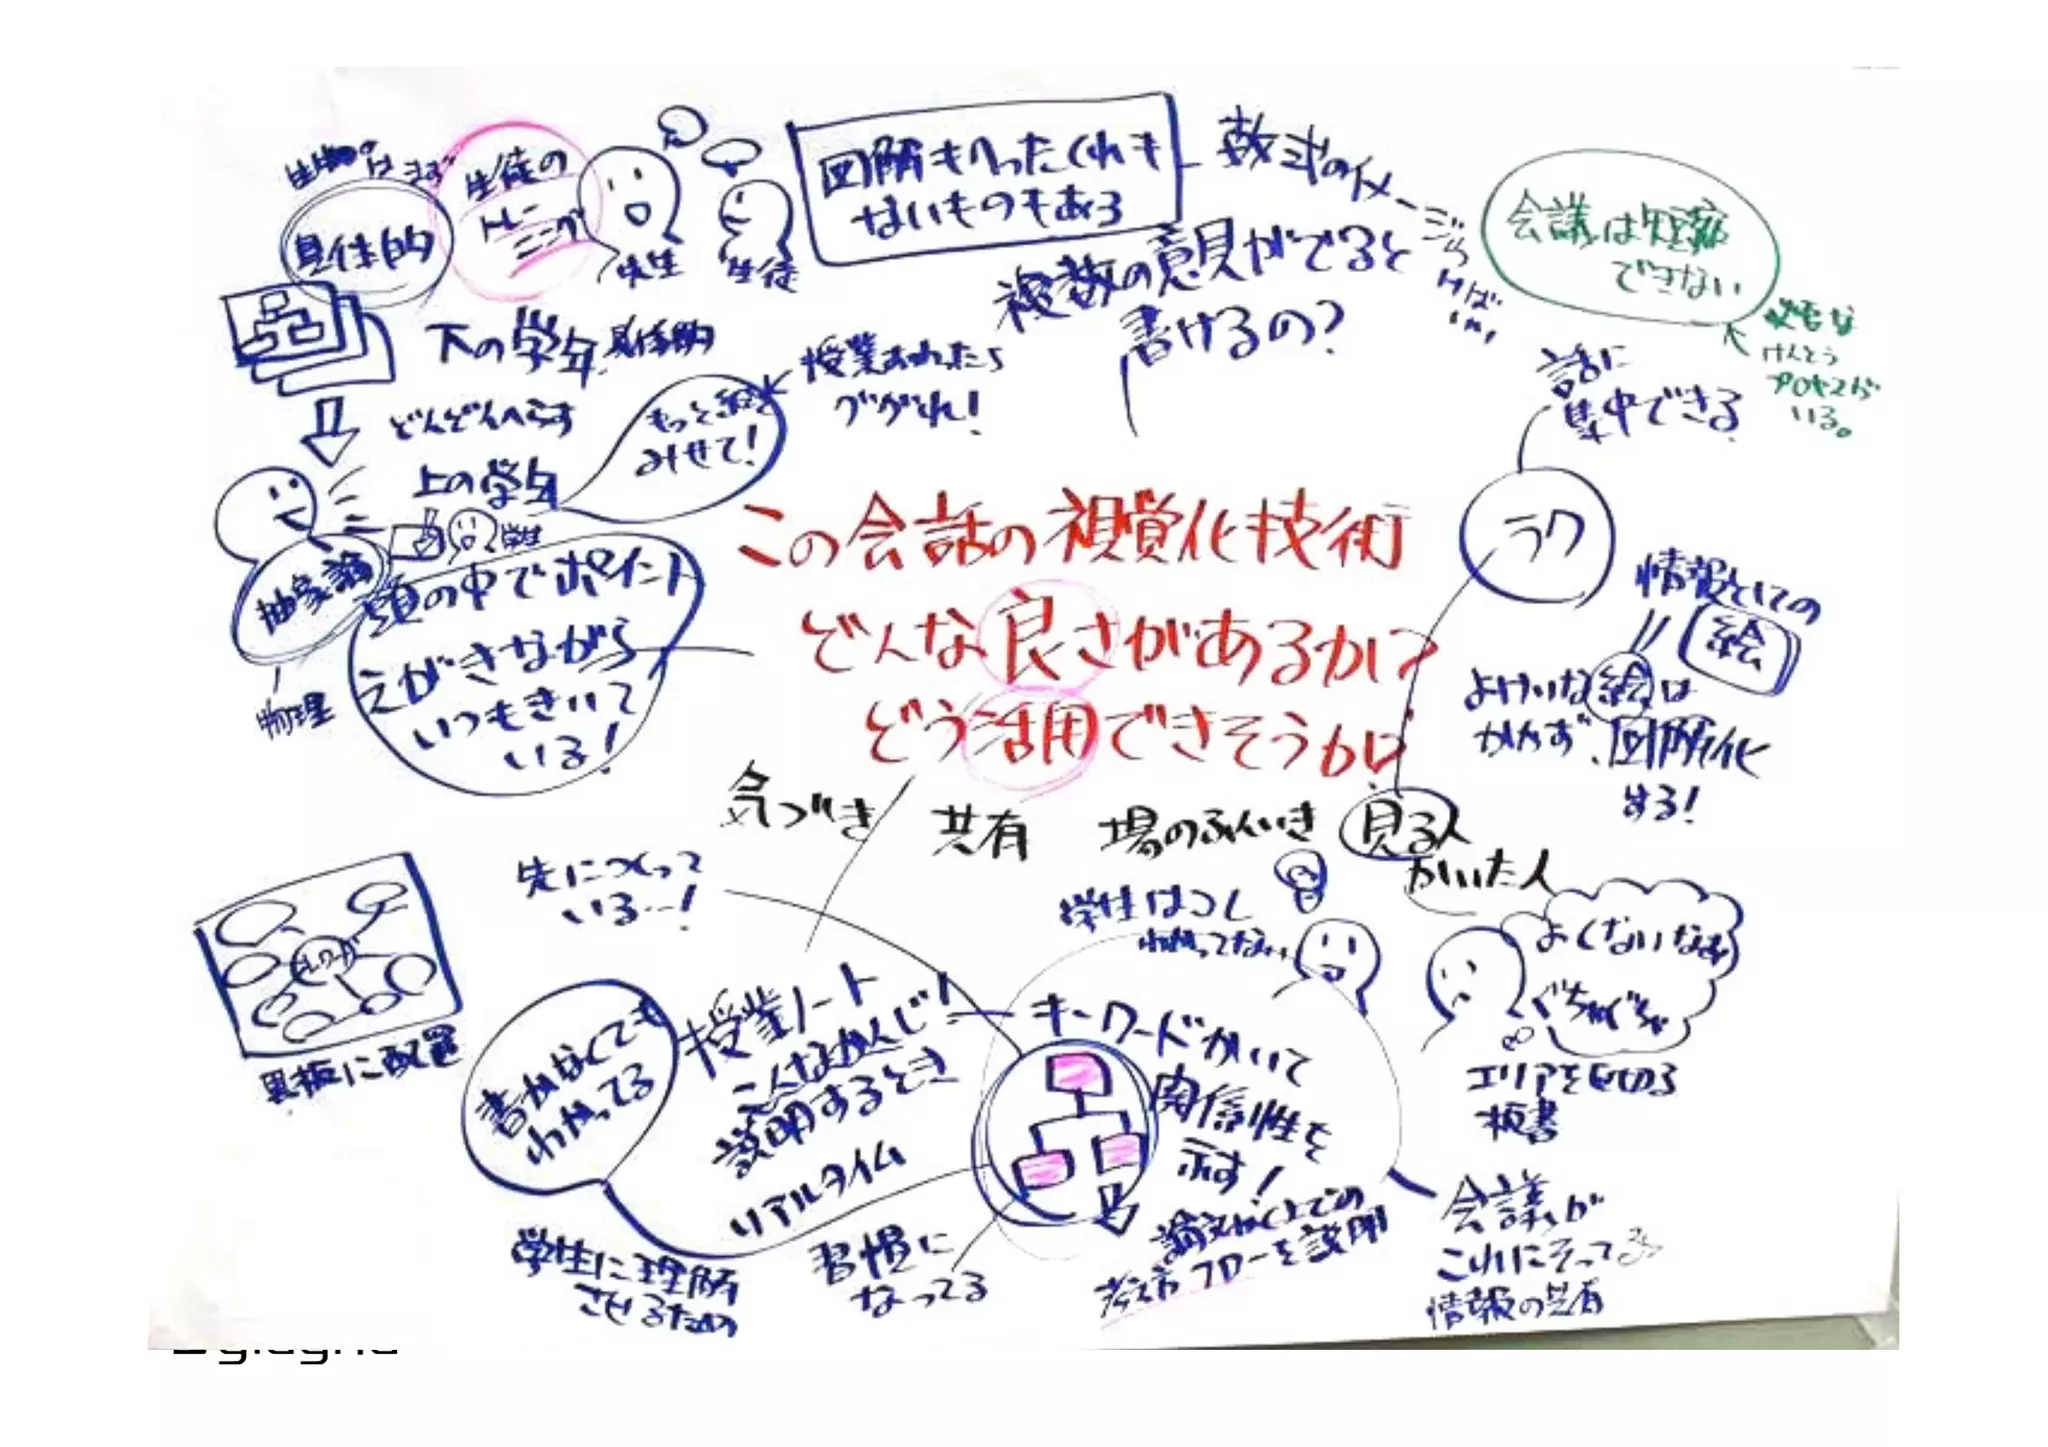 生物はまず
具体的
生徒の
トレーニング
先生
生徒
図解もへったくれも
ないものもある
数式のイメージらければ
複数の意見がでると
書けるの?
会議は短縮
できない
けんとう
プロセスが
いる。
下の学年 具体的
どんどんへらす
上の学年
学生
もっと絵を
みせて!
授業おわったら
ググれ!
抽象論
物理
頭の中でポイント
えがきながら
いつもきいて
いる!
この会話の視覚化技術
どんな良さがあるか?
どう活用できそうか?
話に
集中できる
ラク
情報としての
絵
よけいな絵は
かかず、図解化
する!
気づき
共有
場のふんいき
見る人
かいた人
先につくって
いる…!
キーワード
黒板に配置
書かなくても
わかってる
授業ノート
こんなかんじ!
説明するとき
リアルタイム
学生に理解
させるため
習慣に
なってる
学生はコレ
キーワードかいて
関係性を
示す!
考え方フローを説明
よくないなあ
ぐちゃぐちゃ
エリアを区切る
板書
会議が
これにそってる
情報の共有